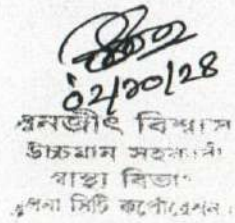 ০২/১০/২৪
বিশ্বাস
উচ্চমান সহকারী
স্বাস্থ্য বিভাগ
খুলনা সিটি কর্পোরেশন।